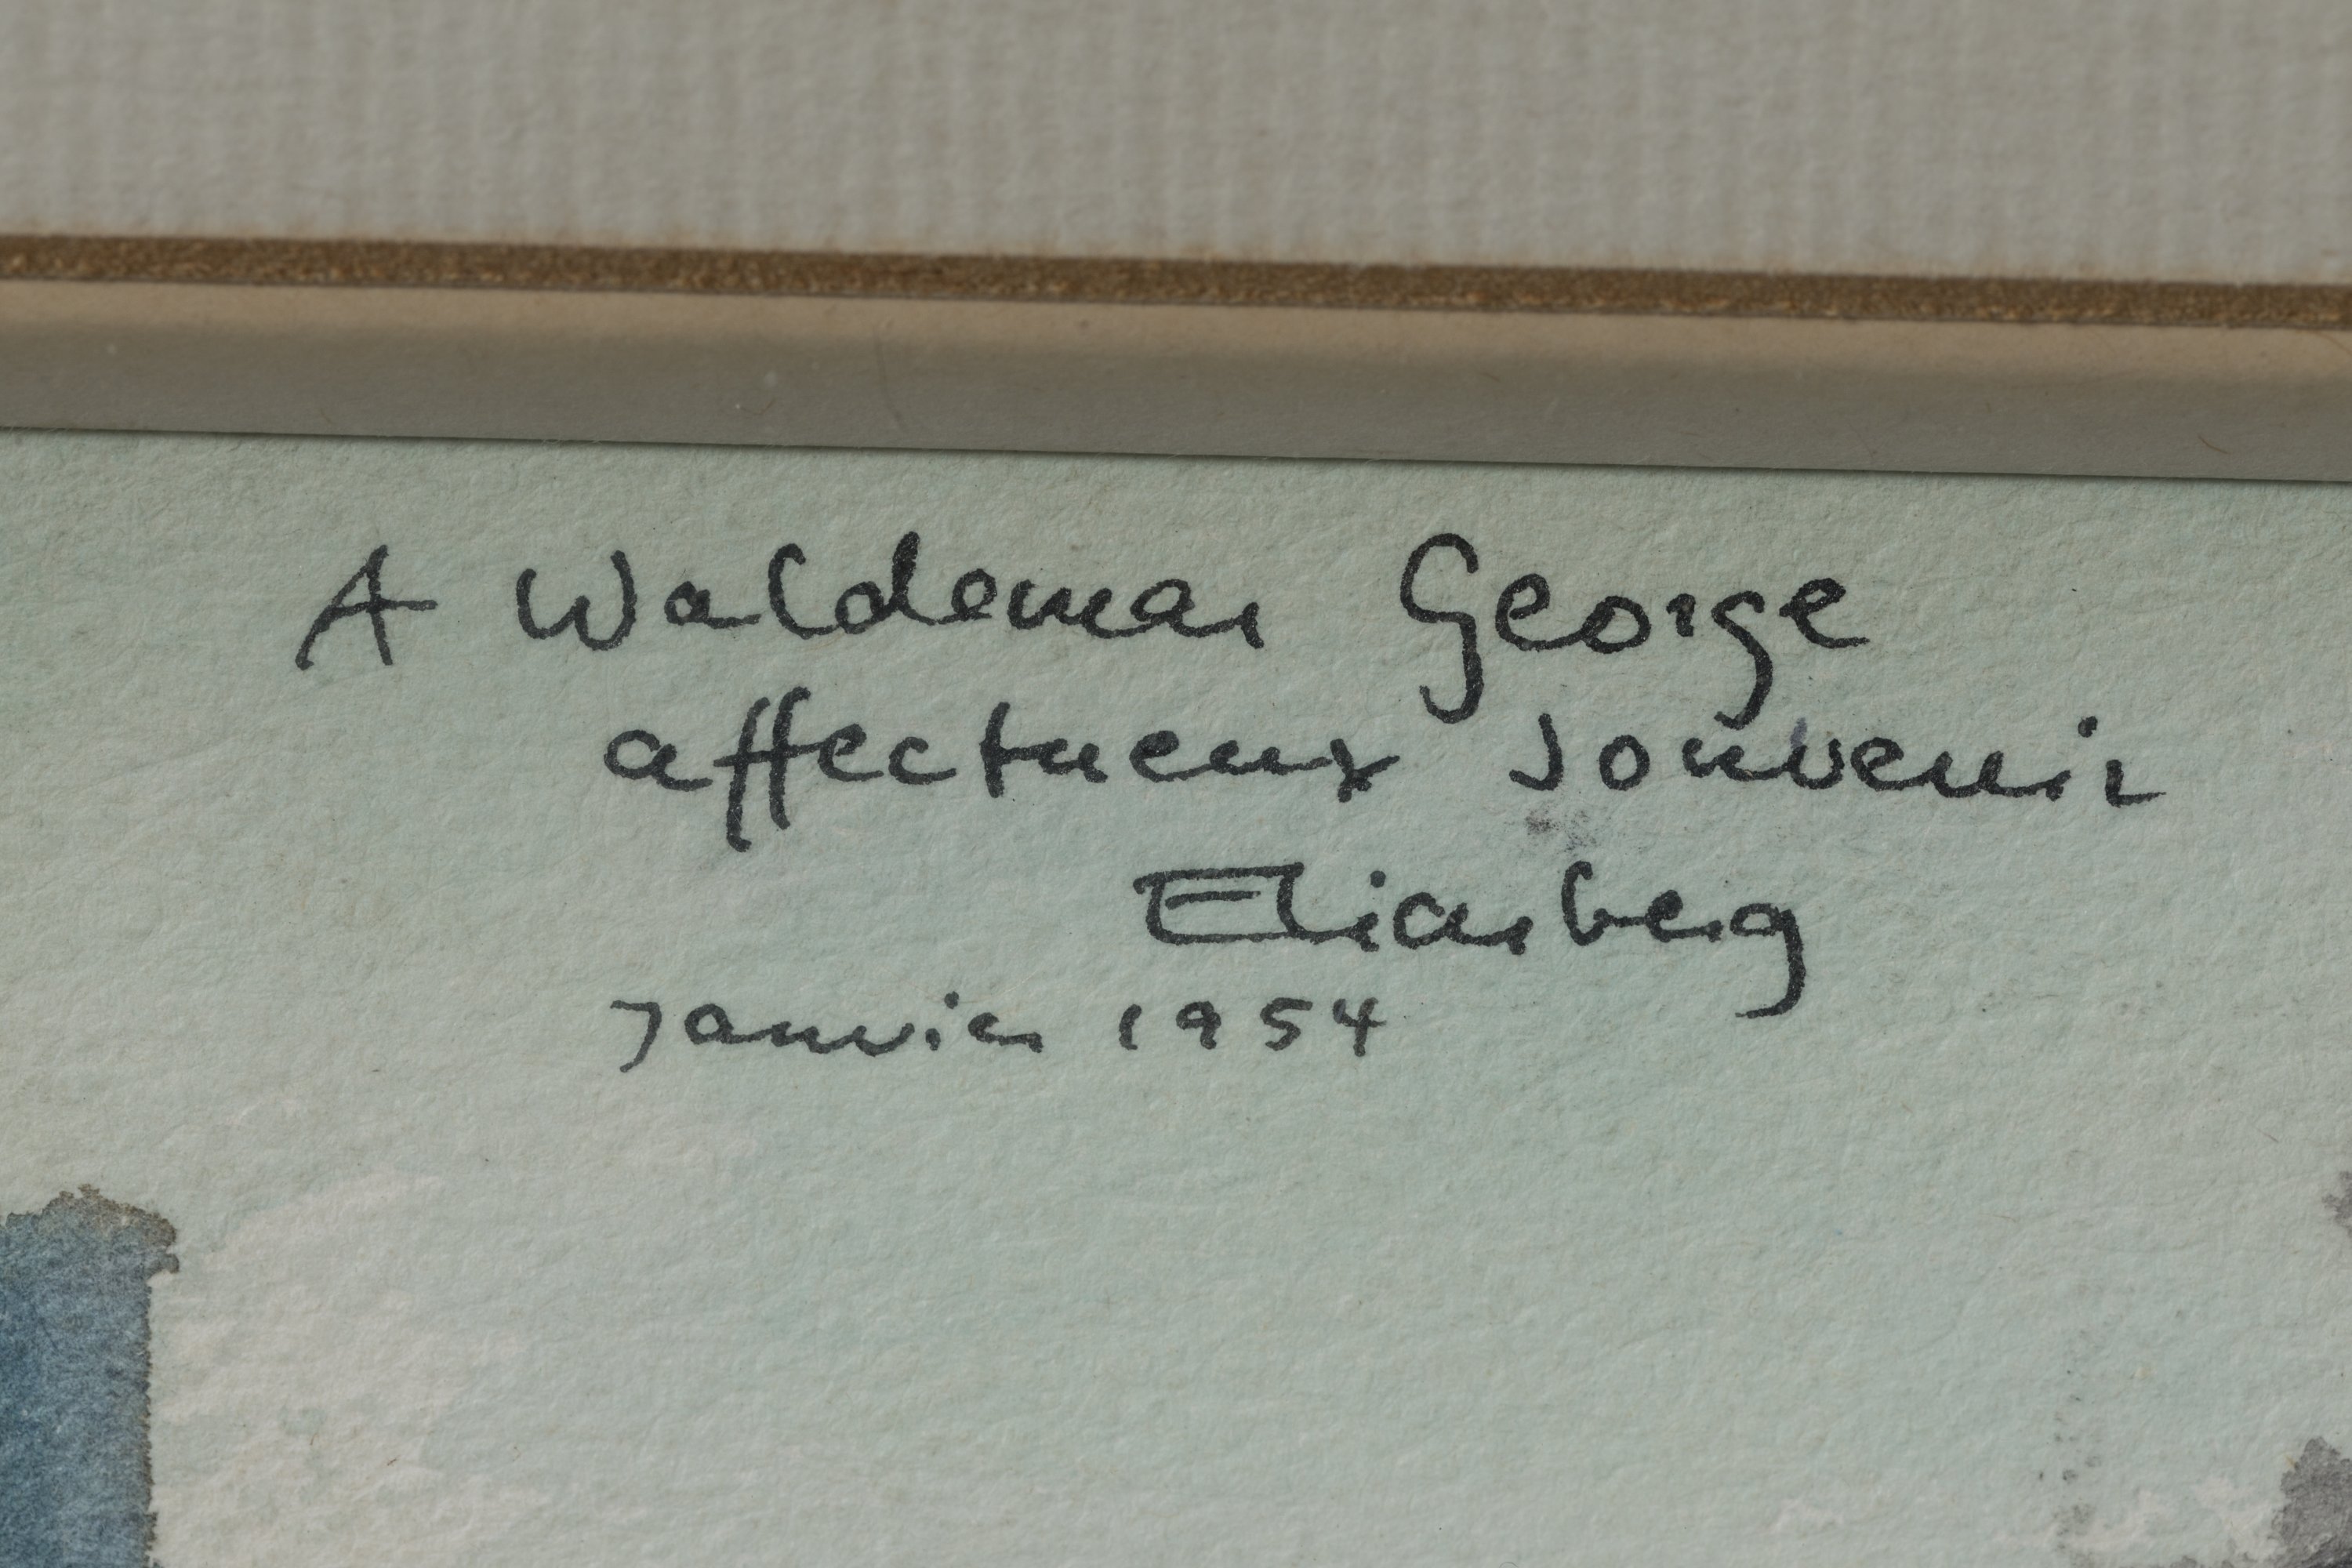 A Waldemar George
affectueux souvenir
Eliasberg
Janvier 1954